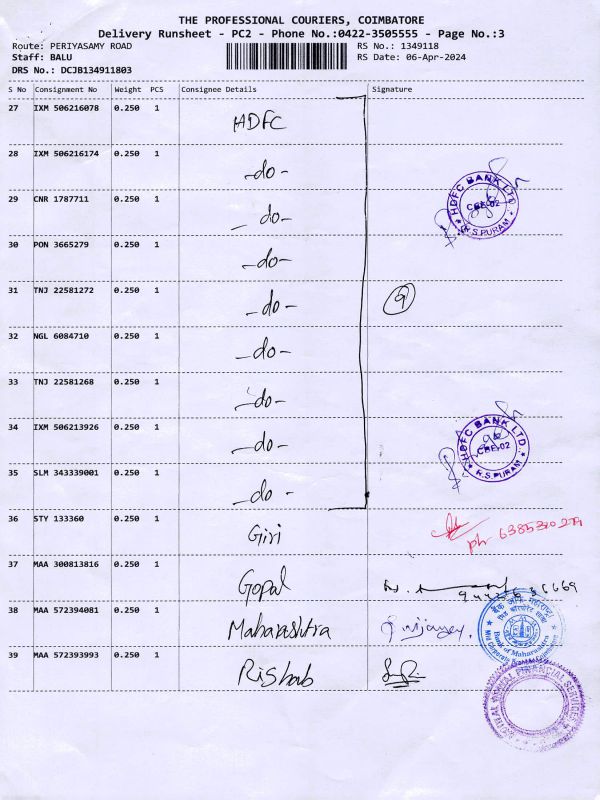 THE PROFESSIONAL COURIERS, COIMBATORE
Delivery Runsheet - PC2 - Phone No.:0422-3505555 - Page No.:3
Route: PERIYASAMY ROAD RS No.: 1349118
Staff: BALU RS Date: 06-Apr-2024
DRS No.: DCJB134911803
S No Consignment No Weight PCS Consignee Details Signature
27 IXM 506216078 0.250 1 HDFC
28 IXM 506216174 0.250 1 -do-
HDFC BANK LTD.
CBE-02
R.S.PURAM
29 CNR 1787711 0.250 1 -do-
30 PON 3665279 0.250 1 -do-
31 TNJ 22581272 0.250 1 -do- 9
32 NGL 6084710 0.250 1 -do-
33 TNJ 22581268 0.250 1 -do-
34 IXM 506213926 0.250 1 -do-
HDFC BANK LTD.
CBE-02
R.S.PURAM
35 SLM 343339001 0.250 1 -do-
36 STY 133360 0.250 1 Giri
ph
37 MAA 300813816 0.250 1 Gopal
38 MAA 572394081 0.250 1 Maharashtra
Bank of Maharashtra
39 MAA 572393993 0.250 1 Rishab
FINANCIAL SERVICES